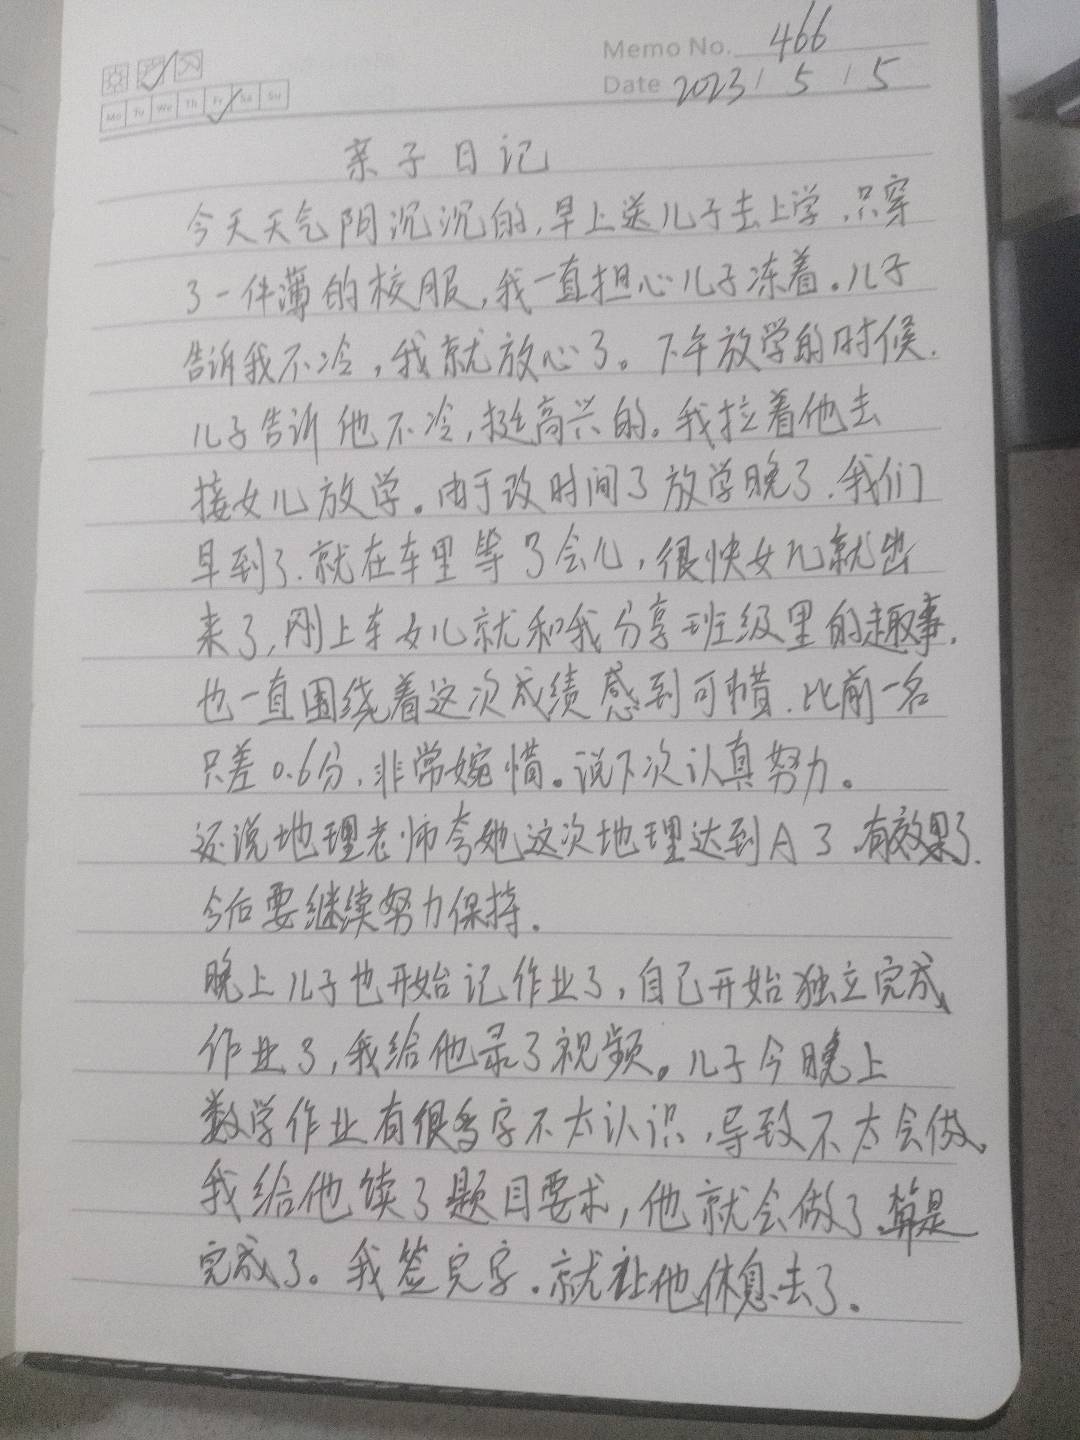 Memo No. 466
Mo Tu We Th Fr Sa Su
Date 2023 / 5 / 5
亲子日记
今天天气阴沉沉的,早上送儿子去上学,只穿
了一件薄的校服,我一直担心儿子冻着。儿子
告诉我不冷,我就放心了。下午放学的时候,
儿子告诉他不冷,挺高兴的。我拉着他去
接女儿放学。由于改时间了放学晚了,我们
早到了,就在车里等了会儿,很快女儿就出
来了,刚上车女儿就和我分享班级里的趣事,
也一直围绕着这次成绩感到可惜,比前一名
只差0.6分,非常婉惜。说下次认真努力。
还说地理老师夸她这次地理达到A了,有效果了,
今后要继续努力保持。
晚上儿子也开始记作业了,自己开始独立完成
作业了,我给他录了视频。儿子今晚上
数学作业有很多字不太认识,导致不太会做,
我给他读了题目要求,他就会做了,算是
完成了。我签完字,就让他休息去了。